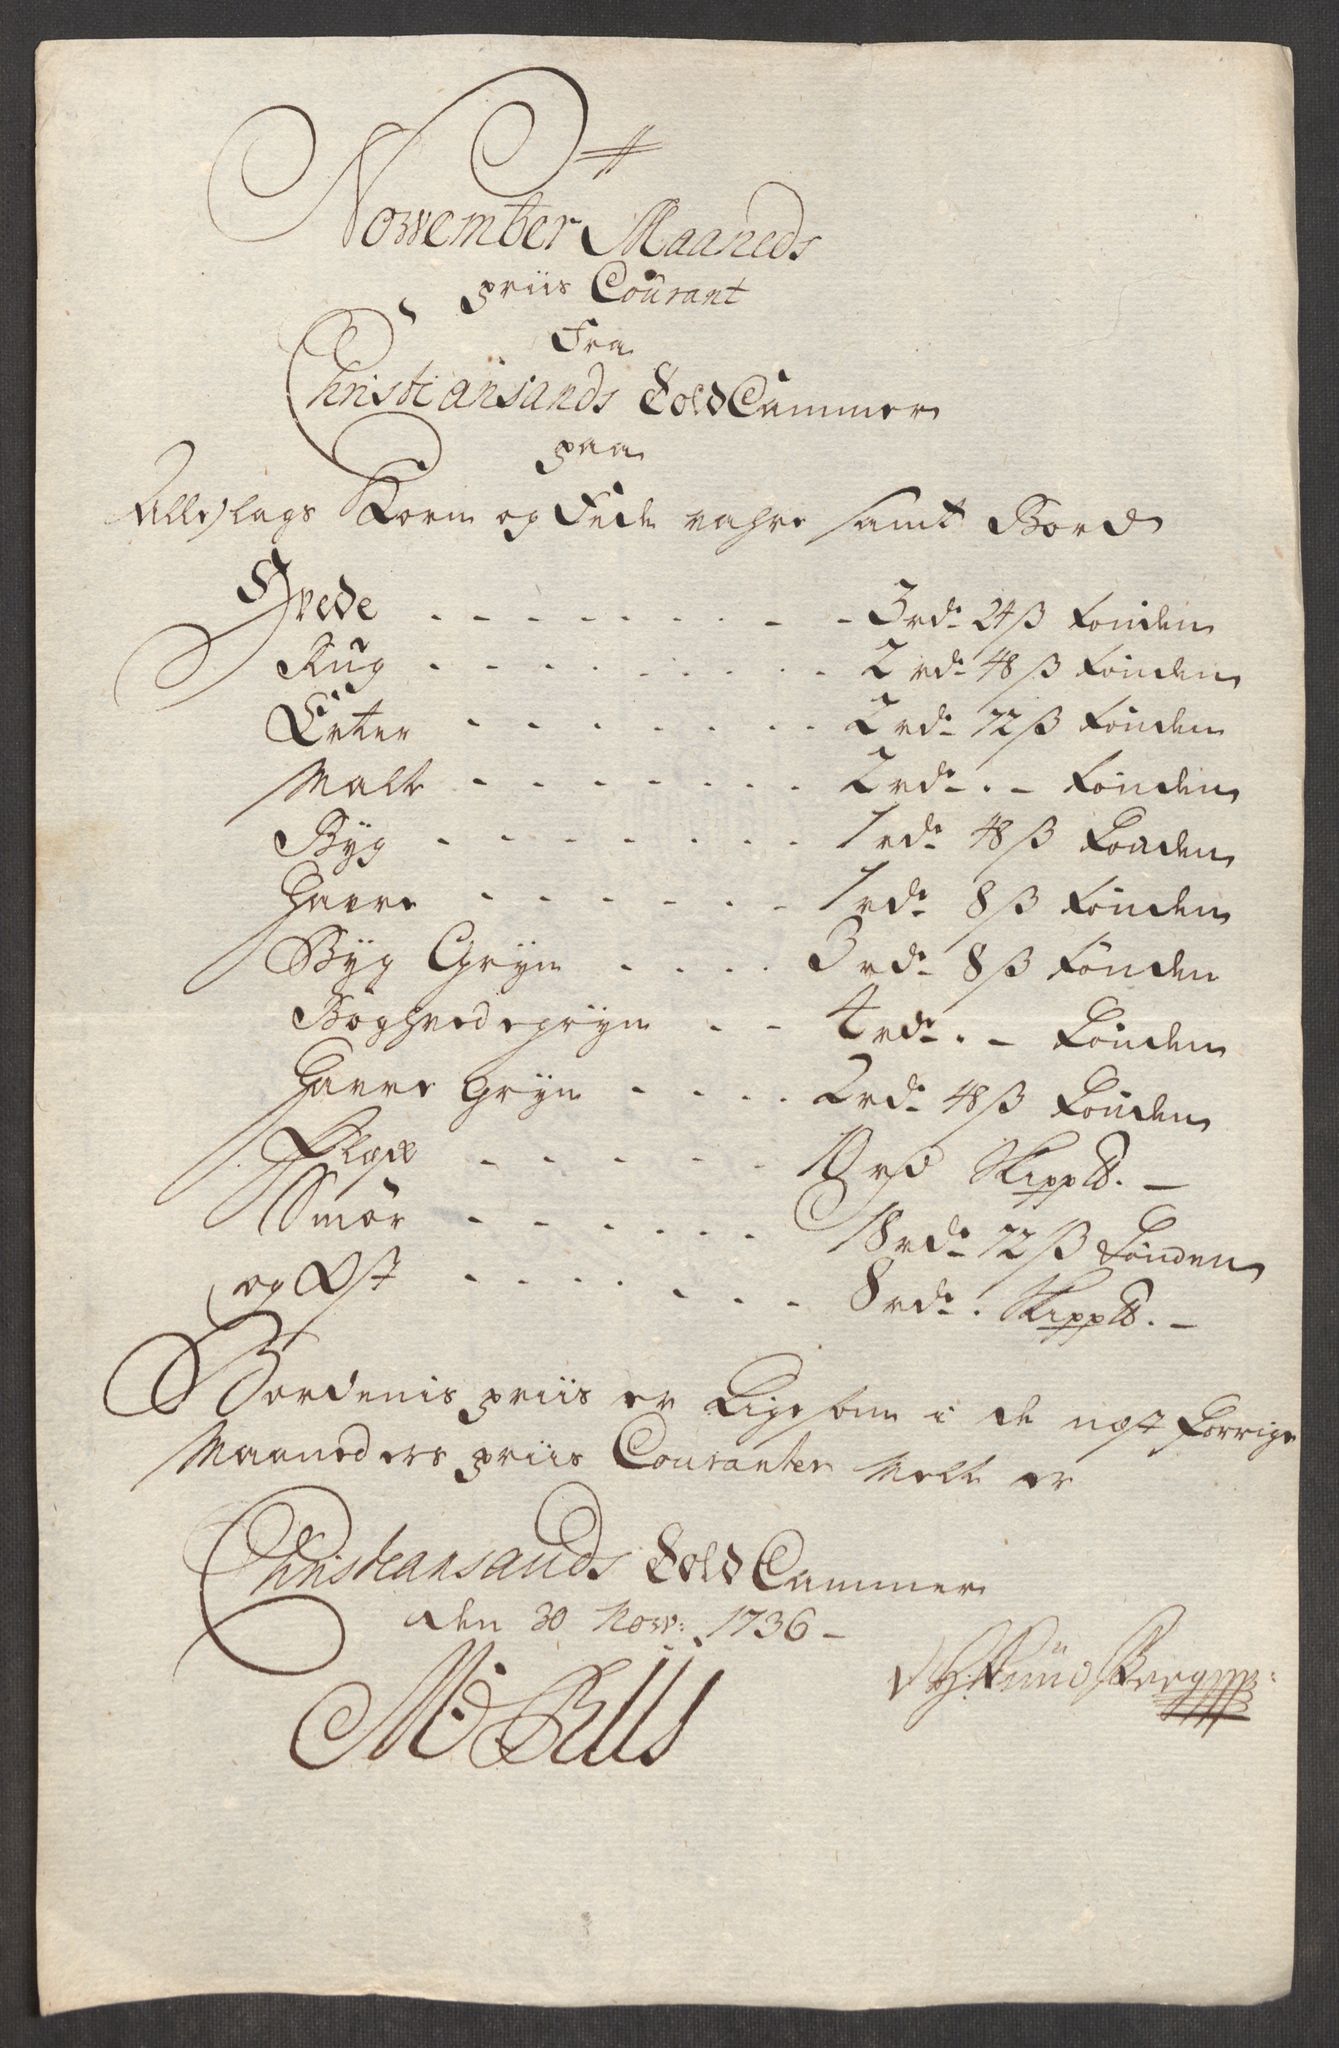 November Maaneds
priis Courant
Fra
Christiansands ToldCammer
paa
Alleslags Korn og Fede vahre samt Bord
Hvede - - - - - - - - 3 rd. 24 ß Tønden
Rug - - - - - - - - 2 rd. 48 ß Tønden
Erter - - - - - - - 2 rd. 72 ß Tønden
Malt - - - - - - - 2 rd. - Tønden
Byg - - - - - - - 1 rd. 48 ß Tønden
Havre - - - - - - 1 rd. 8 ß Tønden
Byg Gryn - - - - 3 rd. 8 ß Tønden
Boghvedegryn - - 4 rd. - Tønden
Havre Gryn - - - - 2 rd. 48 ß Tønden
Flesk - - - - - 10 rd Skipp℔. -
Smør - - - - - - 18 rd. 72 ß Tønden
og Ost - - - - - - - 8 rd. Skipp℔. -
Bordenis priis er Ligesom i de nest forrige
Maaneders priis Couranter Melt er
Christiansands ToldCammer
den 30 Nov: 1736 -